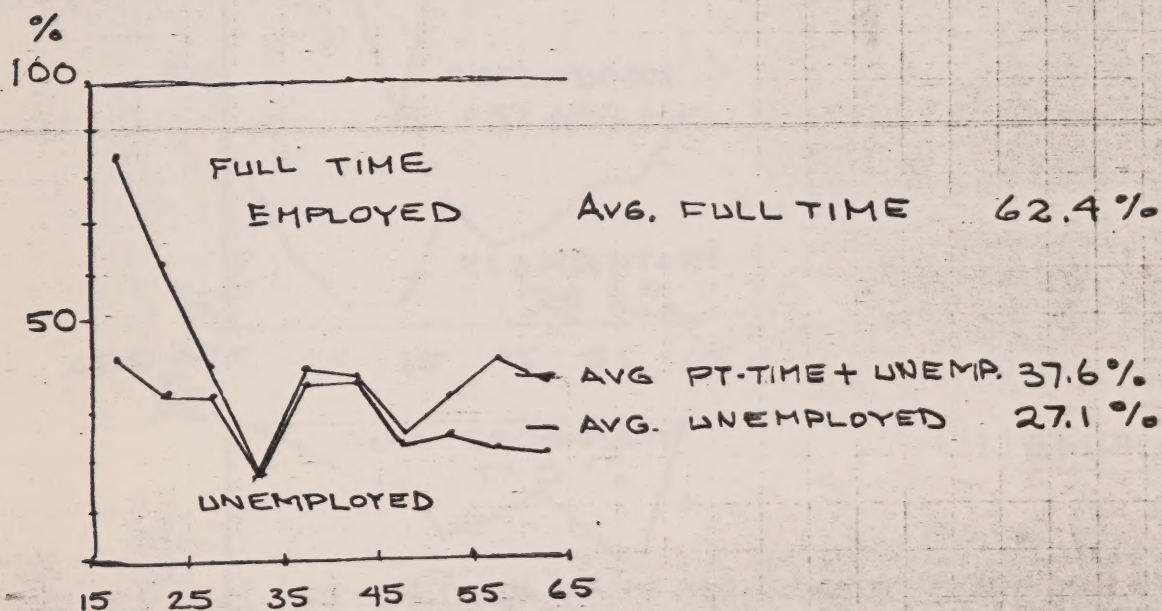 %
100
FULL TIME
EMPLOYED
AVG. FULL TIME 62.4%
50
AVG PT-TIME + UNEMP. 37.6%
AVG. UNEMPLOYED 27.1%
UNEMPLOYED
15 25 35 45 55 65